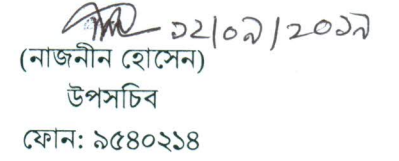 ১২/০৯/২০১৯
(নাজনীন হোসেন)
উপসচিব
ফোন: ৯৫৪০২১৪